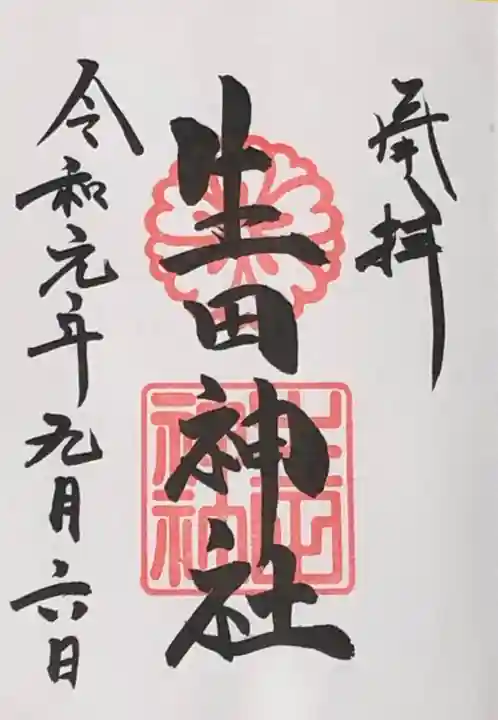 奉拝
生田神社
生田神社
令和元年九月六日